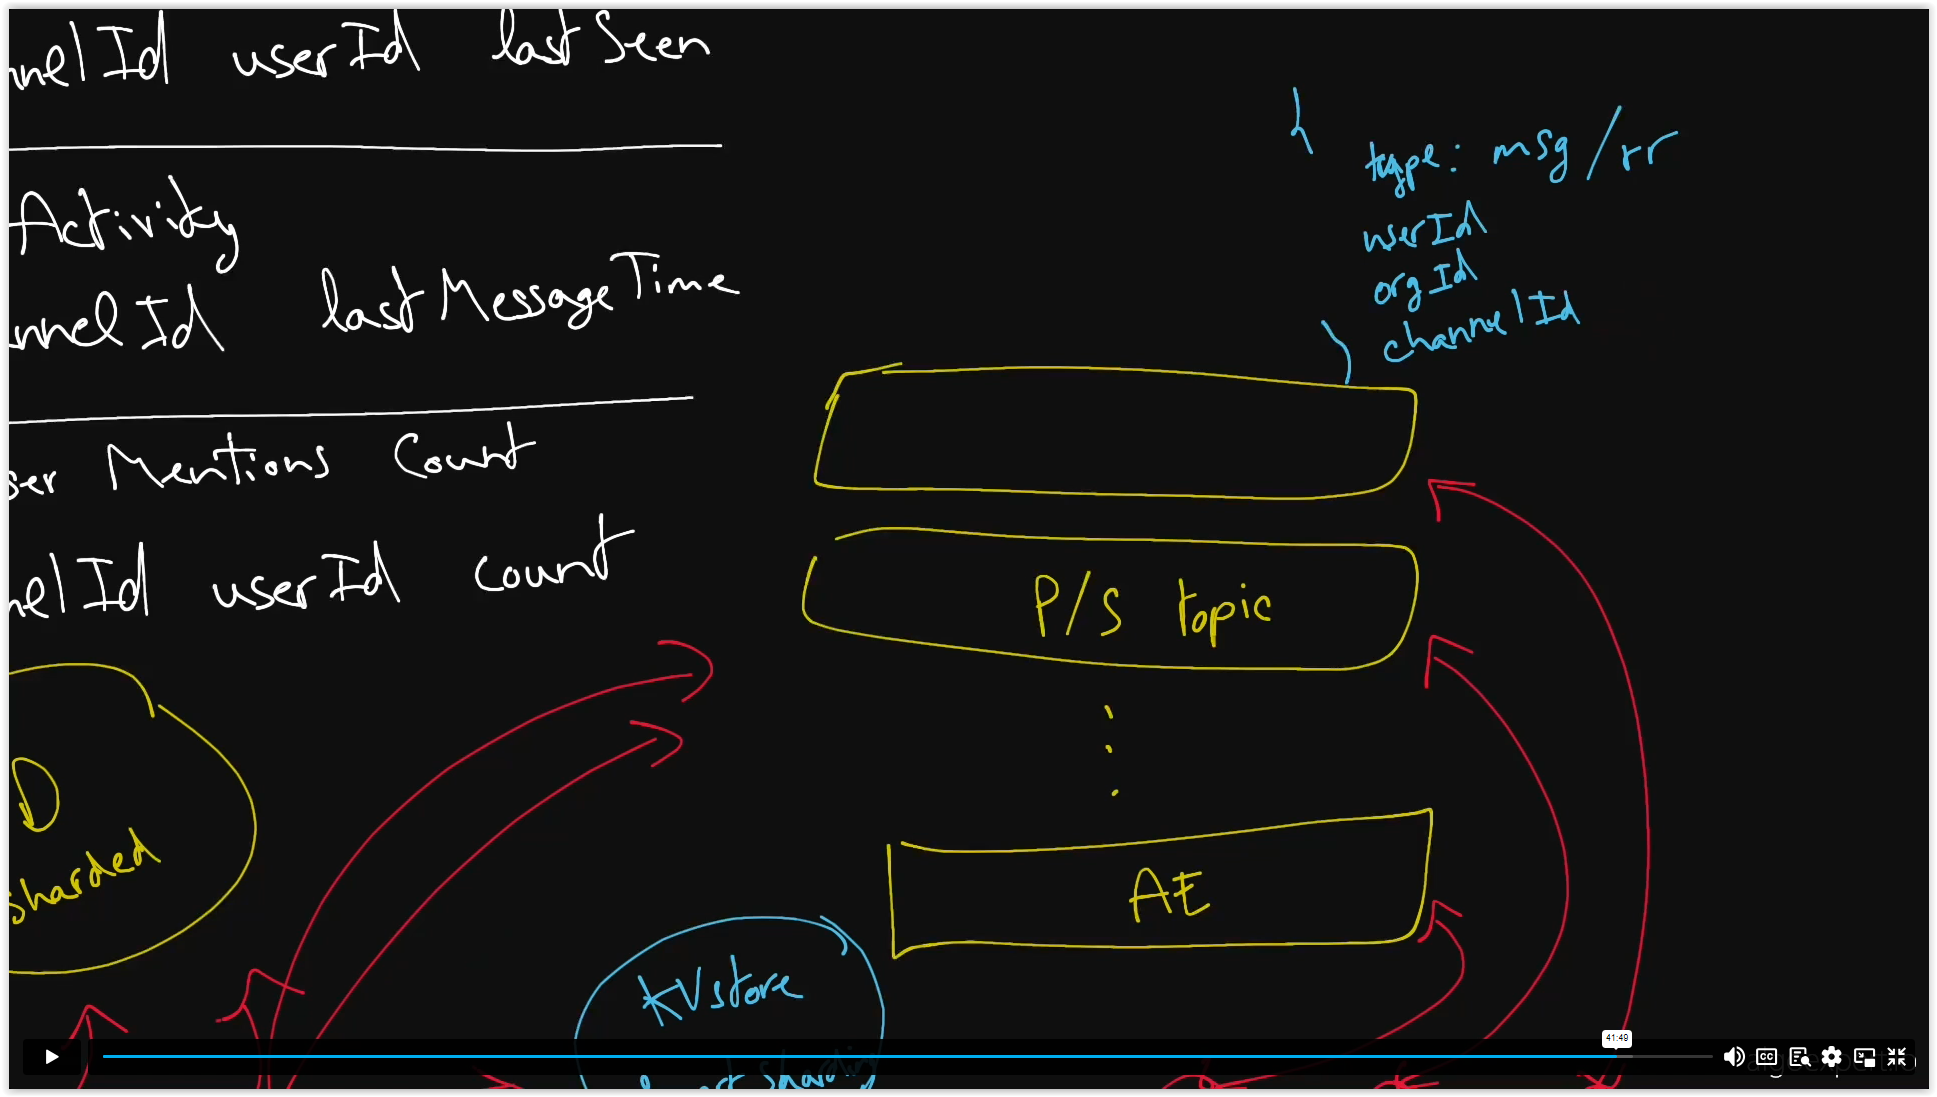 nnelId userId lastSeen
Activity
nnelId lastMessageTime
ser Mentions Count
nelId userId count
D
sharded
{
type: msg/rr
userId
orgId
channelId
}
P/S topic
AE
KVstore
sharding
41:49
CC